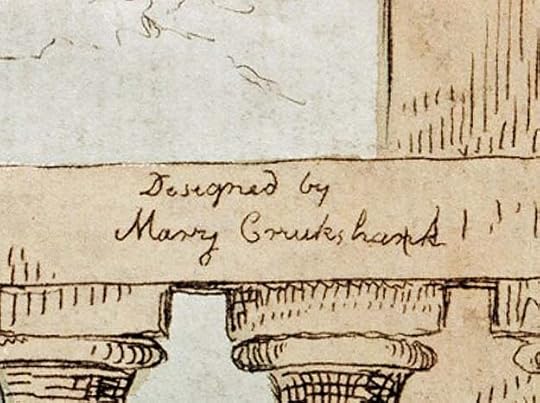 Designed by
Mary Crukshank